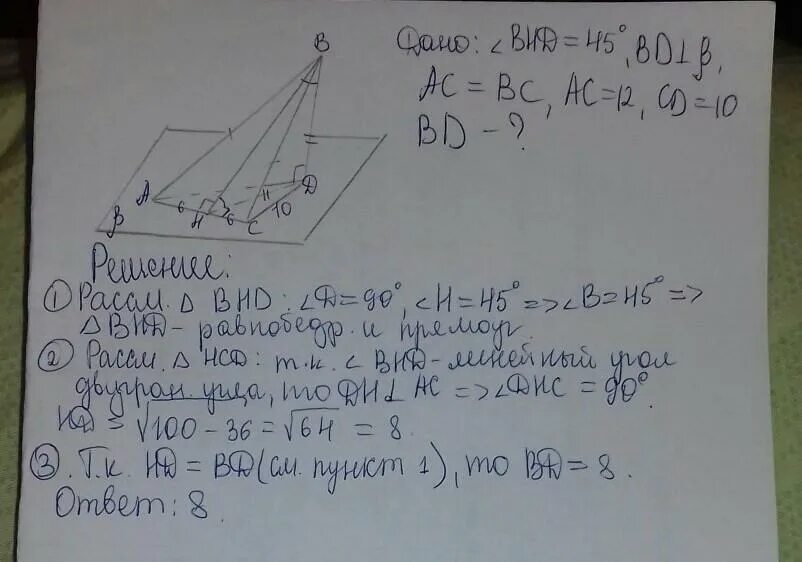 Дано: ∠BHD = 45°, BD⊥β,
AC = BC, AC=12, CD=10
BD - ?
B
A
6
H
6
C
10
D
β
Решение:
① Рассм. △ BHD: ∠D=90°, ∠H=45° => ∠B=45° =>
△BHD - равнобедр. и прямоуг.
② Рассм. △ HCD: т.к. ∠ BHD - линейный угол
двугран. угла, то DH⊥ AC => ∠DHC = 90°.
HD = √100 - 36 = √64 = 8
③. Т.к. HD = BD (см. пункт 1), то BD = 8.
Ответ: 8.